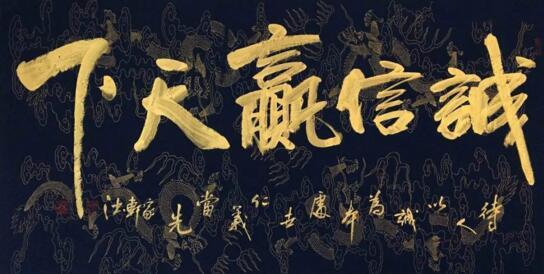 誠信贏天下
待人以誠為本處世仁義當先